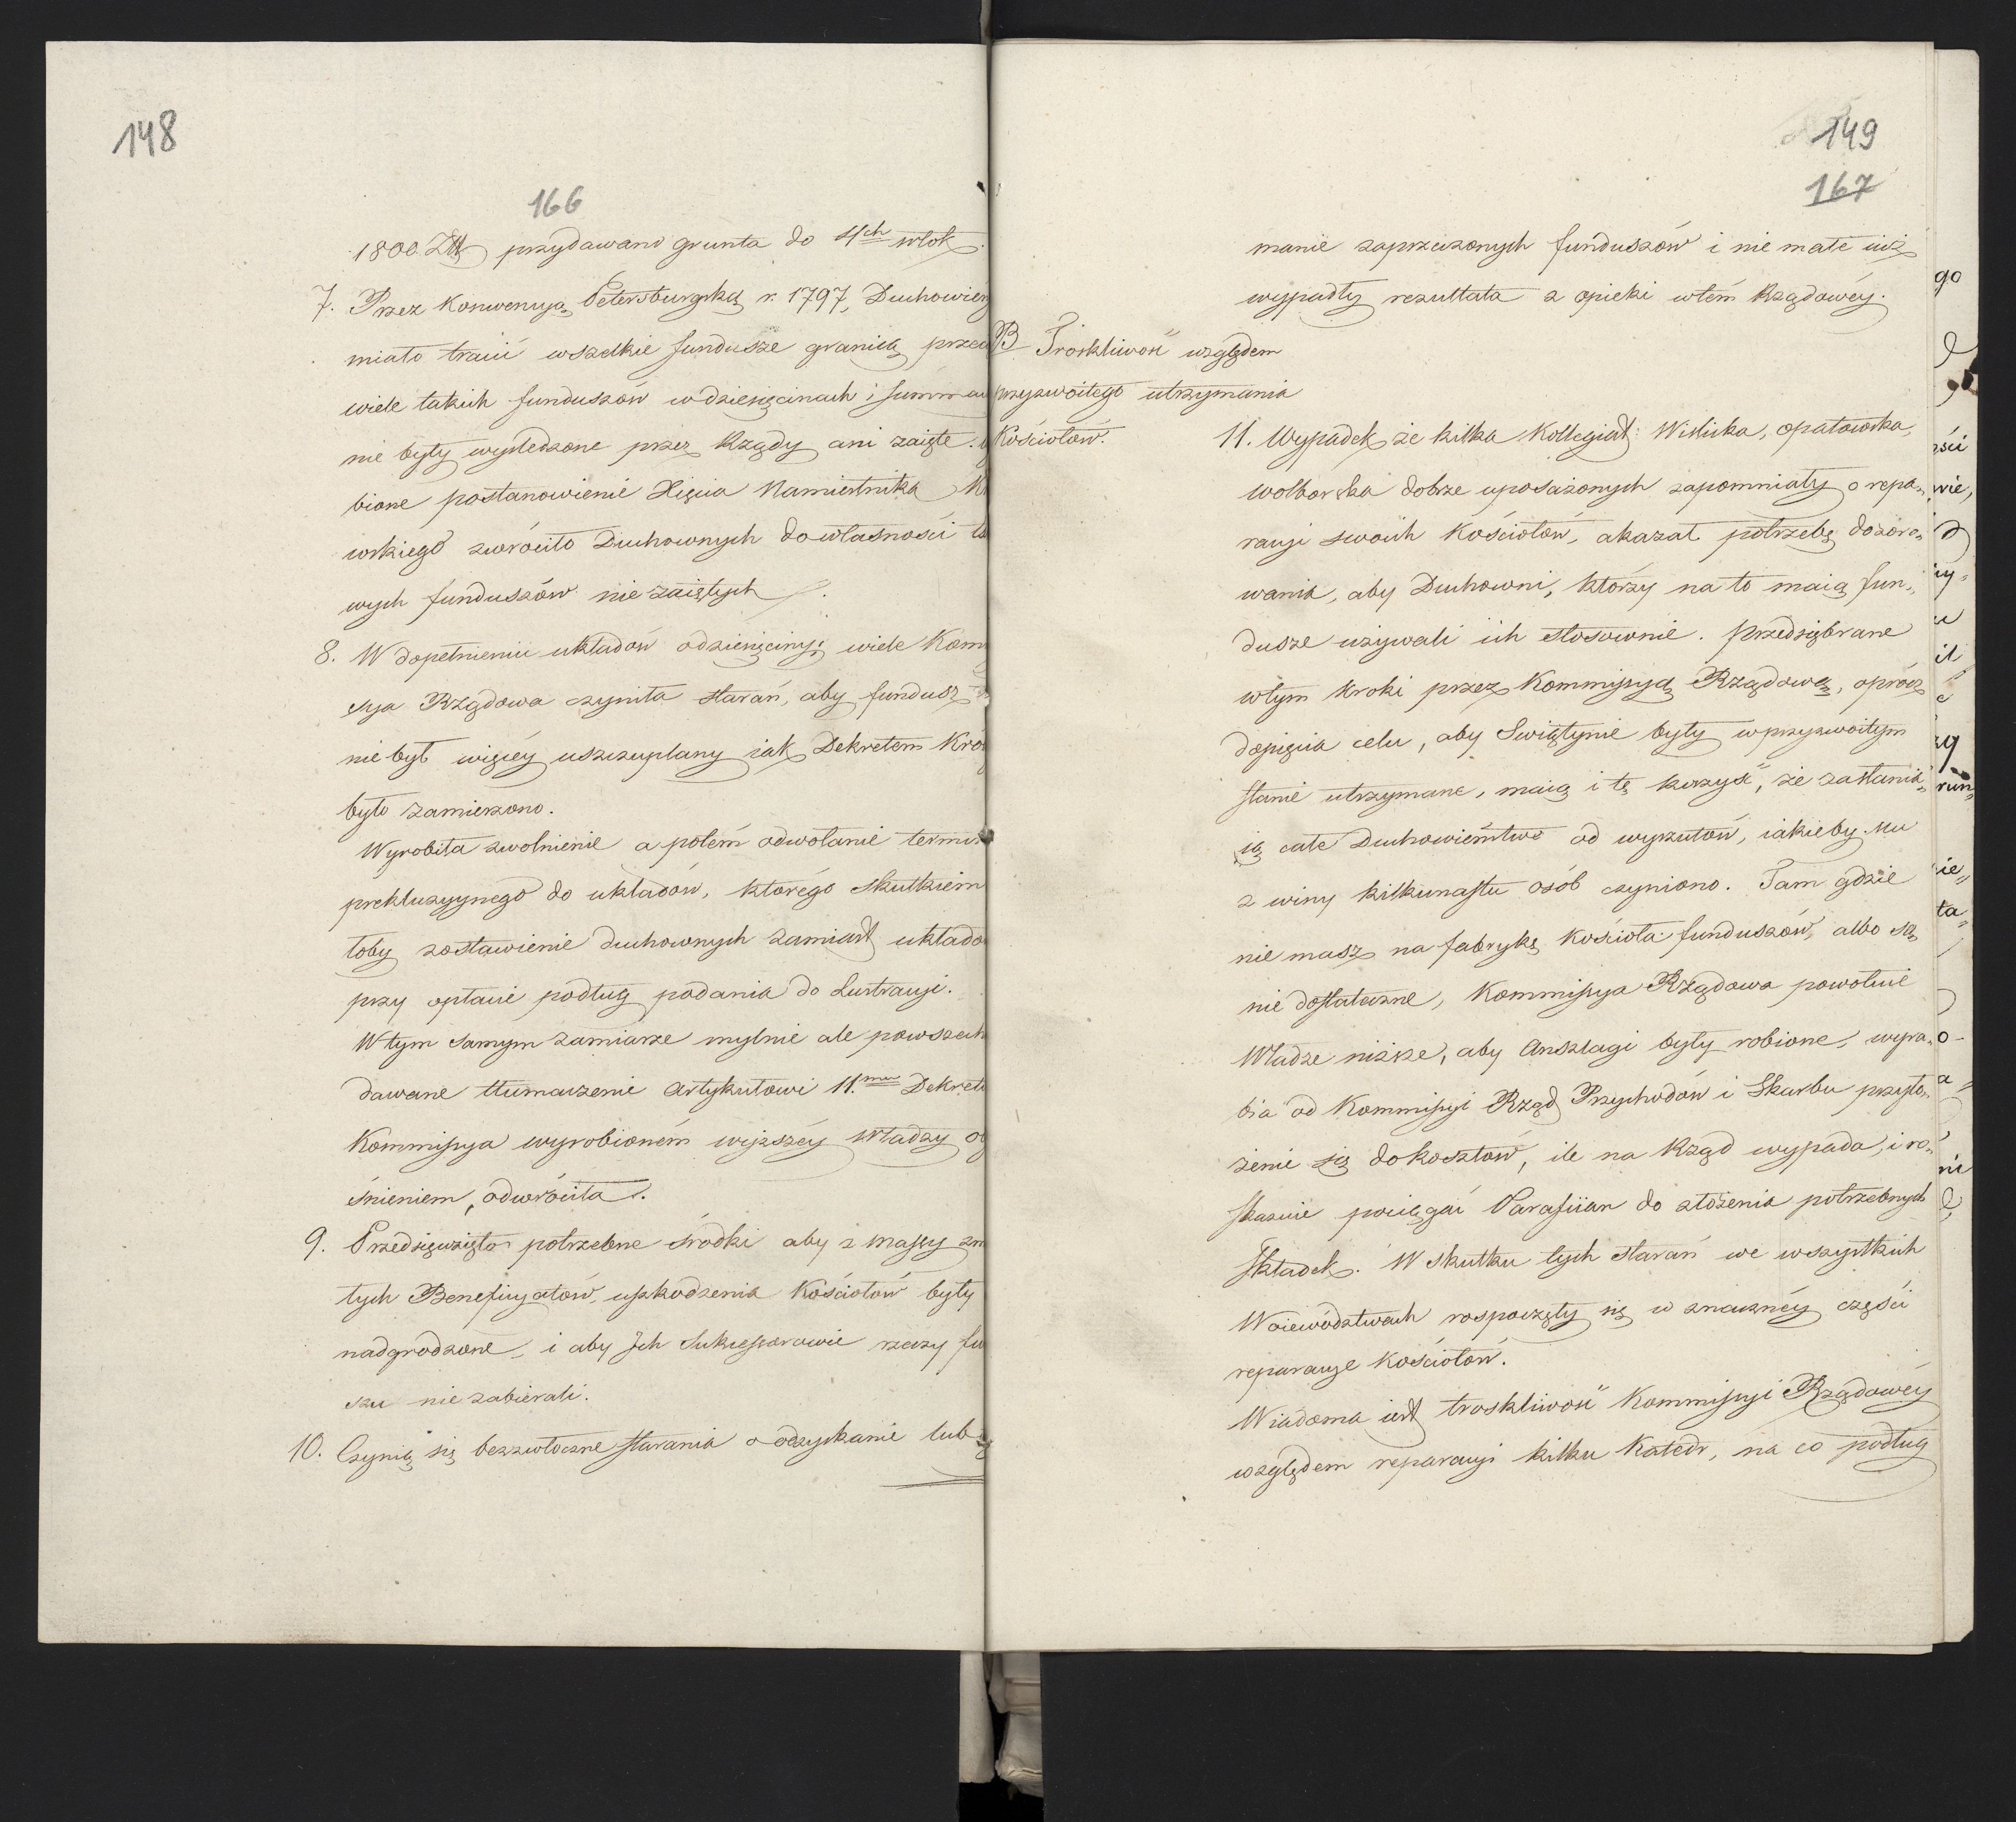 148
166
1800 Złł przydawano grunta do 4ch włok.
7. Przez Konwencyą Petersburgską r. 1797, Duchowien
miało tracić wszelkie fundusze granicą przec
wiele takich funduszów w dziesięcinach i summac
nie były wyśledzone przez Rządy ani zaięte.
bione postanowienie Xięcia Namiestnika
wskiego zwróciło Duchownych do własności
wych funduszów nie zaiętych.
8. W dopełnieniu układów o dziesięciny; wiele Kom
syja Rządowa czyniła starań, aby fundusz
nie był więcéy uszczuplany iak Dekretem Kró
było zamierzono.
Wyrobiła zwolnienie a potém odwołanie termi
prekluzyynego do układów, którego skutkiem
łoby zostawienie duchownych zamiast układó
przy opłacie podług podania do Lustracyi.
W tym samym zamiarze mylnie ale powszech
dawane tłumaczenie artykułowi 11.mu Dekretu
Kommissya wyrobioném wyższéy władzy
śnieniem, odwróciła.
9. Przedsięwzięto potrzebne środki aby z massy zm
łych Beneficyatów, uszkodzenia Kościołów były
nadgrodzone, i aby Ich Sukcessorowie rzeczy fu
szu nie zabierali.
10. Czynią się bezzwłoczne starania o odzyskanie lub
149
167
manie zaprzeczonych funduszów i nie małe iuż
wypadły rezultata z opieki w tém Rządowéy.
B Troskliwość względem
przyzwoitego utrzymania
Kościołów.
11. Wypadek że kilka Kollegiat: Wislicka, opatowska,
wolborska dobrze uposażonych zapomniały o repa„
racyi swoich Kościołów, okazał potrzebę dozoro„
wania, aby Duchowni, którzy na to maią fun„
dusze używali ich stosownie. Przedsiębrane
w tym kroki przez Kommissyą Rządową, oprócz
dopięcia celu, aby Swiątynie były w przyzwoitym
stanie utrzymane, maią i tę korzyść, że zasłania„
ią całe Duchowieństwo od wyrzutów, iakieby mu
z winy kilkunastu osób czyniono. Tam gdzie
nie masz na fabrykę Kościoła funduszów, albo są
nie dostateczne, Kommissya Rządowa powołuie
Władze niższe, aby Anszlagi były robione, wyra„
bia od Kommissyi Rząd. Przychodów i Skarbu przyło„
żenie się do kosztów, ile na Rząd wypada, i ro„
skazuie pociągać Parafiian do złożenia potrzebnych
składek. W skutku tych starań we wszystkich
Woiewództwach rospoczęły się w znacznéy części
reparacye Kościołów.
Wiadoma iest troskliwość Kommissyi Rządowéy
względem reparacyi kilku Katedr, na co podług